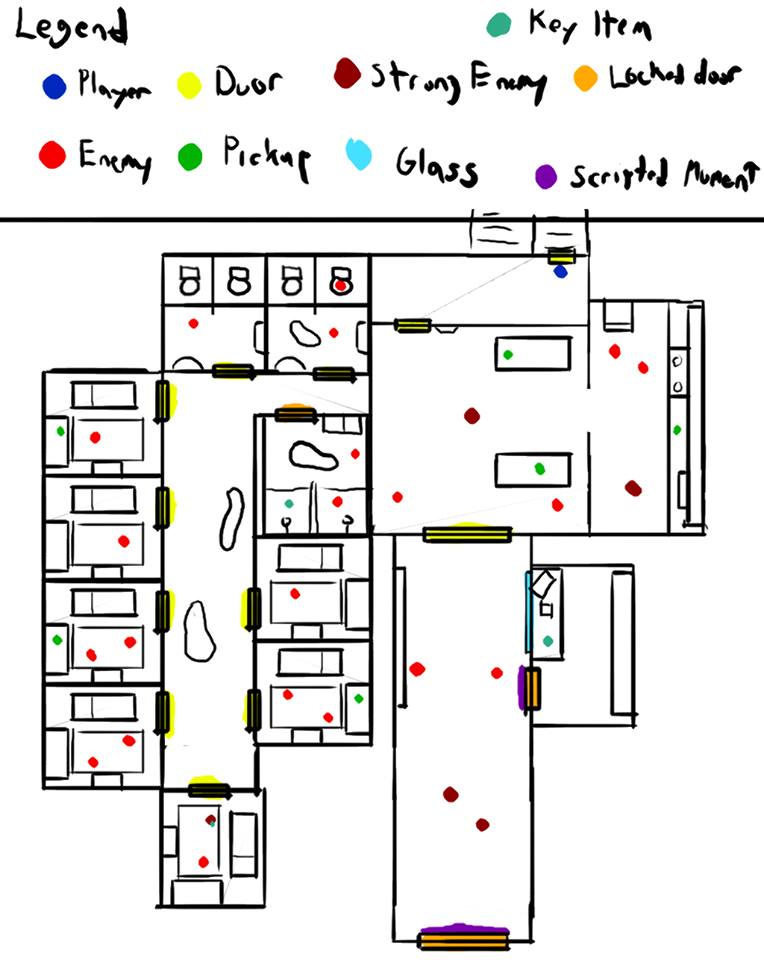 Legend
Key Item
Player Door Strong Enemy Locked door
Enemy Pickup Glass Scripted Moment